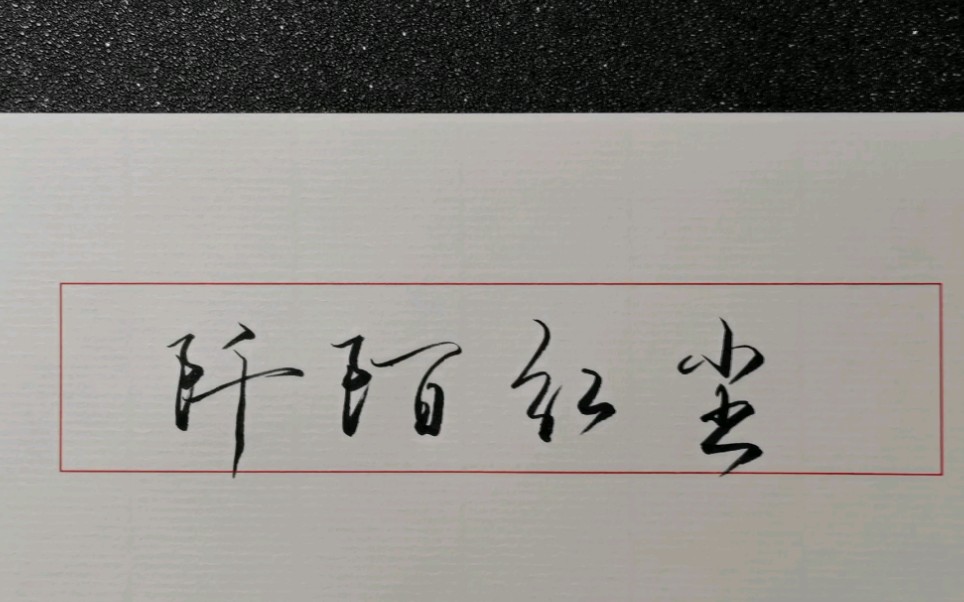 阡陌红尘